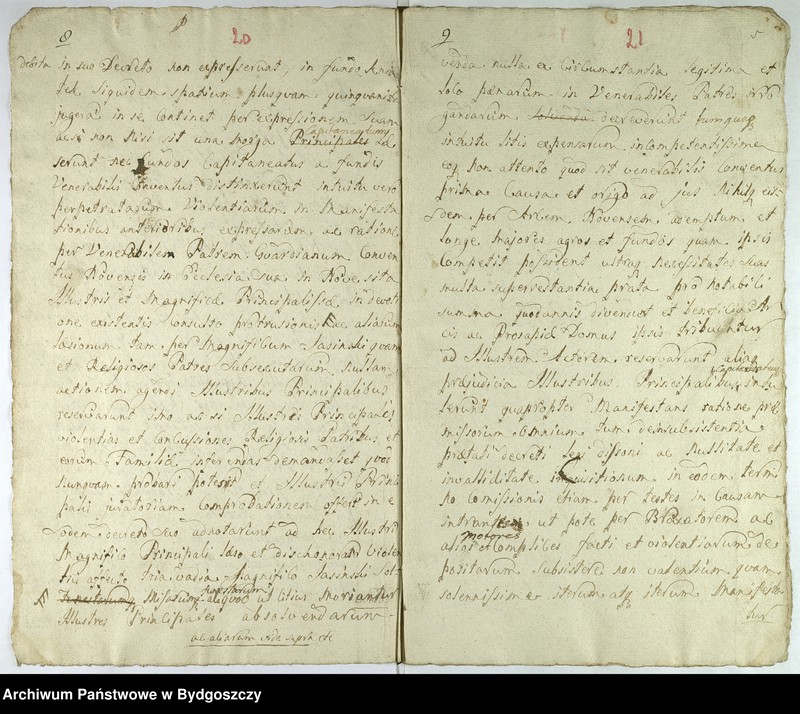 8 20
debita in suo Decreto non expresserunt, in fundo
siquidem spatium plusquam quinquaginta
jugera in se continet per expressionem suam
ac si non nisi sit una Morga Principales Capitaneatum
serunt nec fundos Capitaneatus a fundis
Venerabilis Conventus distinxerunt intuitu vero
perpetratarum Violentiarum in Manifesta
tionibus anterioribus expressarum, ac ratione
per Venerabilem Patrem Guardianum Conven
tus Novensis in Ecclesia sua in Nove sita
Illustris et Magnificae Principalis in devoti
one existentis consulto protrusionis ac aliarum
laesionum tam per Magnificum Jasinski quam
et Religiosos Patres Subsecutarum nullam
actionem agendi Illustribus Principalibus
reservarunt imo ac si Illustres Principales
violentias et Concussiones Religiosis Patribus et
eorum Familiae inferendas demandasset quod
nunquam probari potest et Illustris Princi
palis juratoriam comprobationem offert in e
odem decreto suo adnotarunt ad hec Illustri
Magnifico Principali laeso et dishonorato Violen
tiis affecto tria vadia Magnifico Jasinski solo
Illustres Principales absolvendarum
ac aliarum vide supra etc
9 21 5
venda nulla ex Circumstantia legitima et
solo paenarum in Venerabiles Patres irro
gandarum decreverunt tumque
intuitu litis expensarum incompetentissime
eoque non attento quod sit venerabilis conventus
prima Causa et origo ad jus Nihilque eis
dem per Arcem Novensem ademptum et
longe majores agros et fundos quam ipsis
Competit possident ultraque necessitates suas
multa superestantia prata pro notabili
summa quotannis divendit et beneficia Ar
cis ac Prosapiae Domus ipsis tribuuntur
ad Illustrem Actorem reservarunt aliaque
praejudicia Illustribus Principalibus Capitaneatus intu
lerunt quapropter Manifestans ratione prae
missorum omnium tum de insubsistentia
praetati decreti legi dissoni ac Nullitate et
invaliditate inquisitionum in eodem termi
no comissionis etiam per testes in Causam
intran ut pote per Braxatorem ac
alios motores et Complices facti et violentiarum de
positarum subsistere non valentium quam
solennissime iterum atque iterum Manifesta
tur